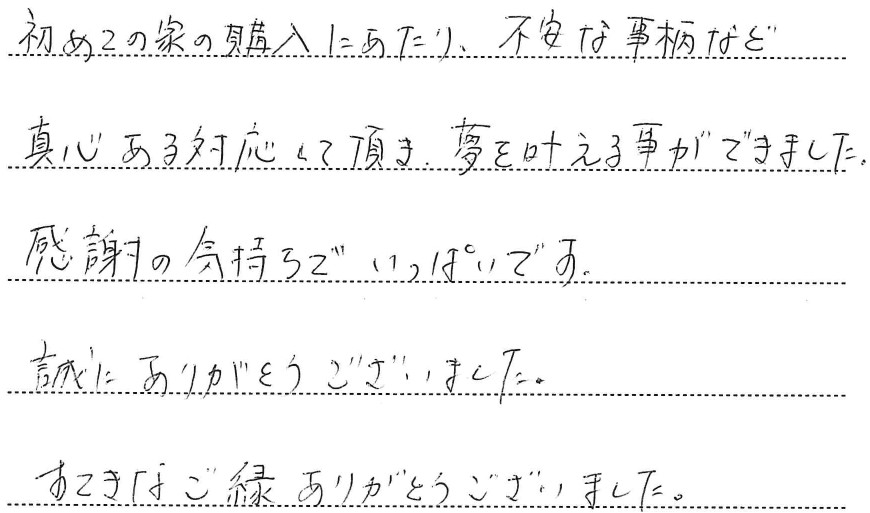 初めての家の購入にあたり、不安な事柄など
真心ある対応して頂き、夢を叶える事ができました。
感謝の気持ちでいっぱいです。
誠にありがとうございました。
すてきなご縁ありがとうございました。